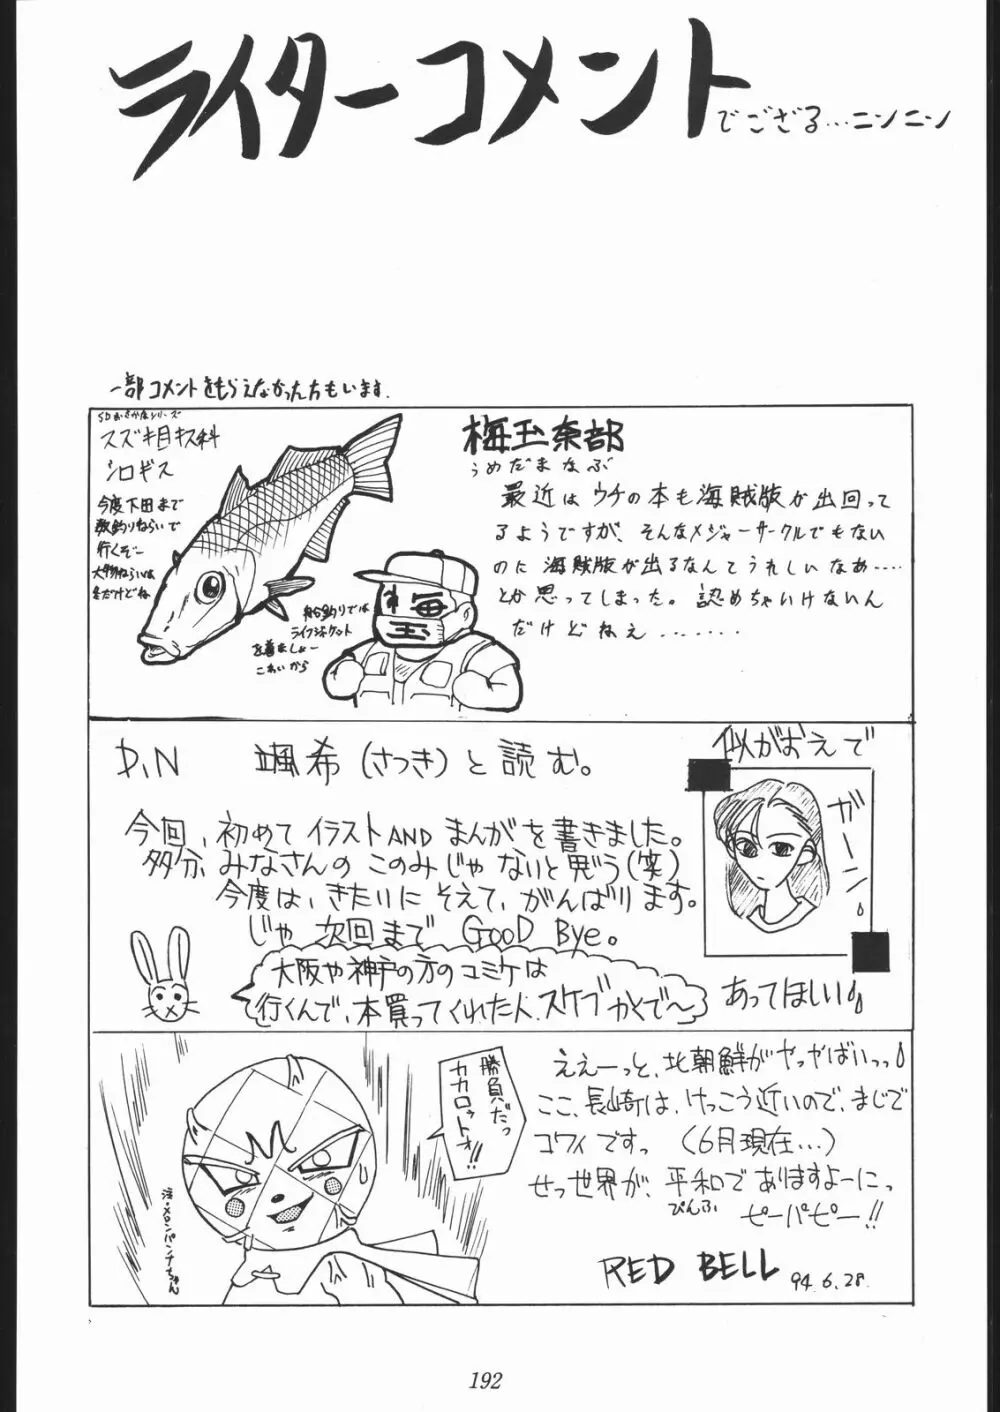 ライターコメント
でござる…ニンニン
一部コメントをもらえなかった方もいます。
SDおさかなシリーズ
スズキ目キス科
シロギス
今度下田まで
数釣りねらいで
行くぞー
大物ねらいは
まだけどね
船釣りでは
ライフジャケット
を着ましょー
こわいから
梅玉
梅玉奈部
うめだまなぶ
最近はウチの本も海賊版が出回って
るようですが、そんなメジャーサークルでもない
のに海賊版が出るなんてうれしいなあ……
とか思ってしまった。認めちゃいけないん
だけどねえ………
P.N 颯希(さつき)と読む。
今回、初めてイラストANDまんがを書きました。
多分、みなさんのこのみじゃないと思う(笑)
今度は、きたいにそえて、がんばります。
じゃ次回まで GooD Bye。
大阪や神戸の方のコミケは
行くんで、本買ってくれた人、スケブかくで〜
似がおえで
ガーン
あってほしい
勝負だっ
カカロットォ!!
注・メロンパンナちゃん
ええーっと、北朝鮮がヤッやばいっっ
ここ、長崎は、けっこう近いので、まじで
コワイですっ (6月現在…)
せっ世界が、平和でありますよーにっ
ぴんふ
ピーパピー!!
RED BELL
94.6.28.
192